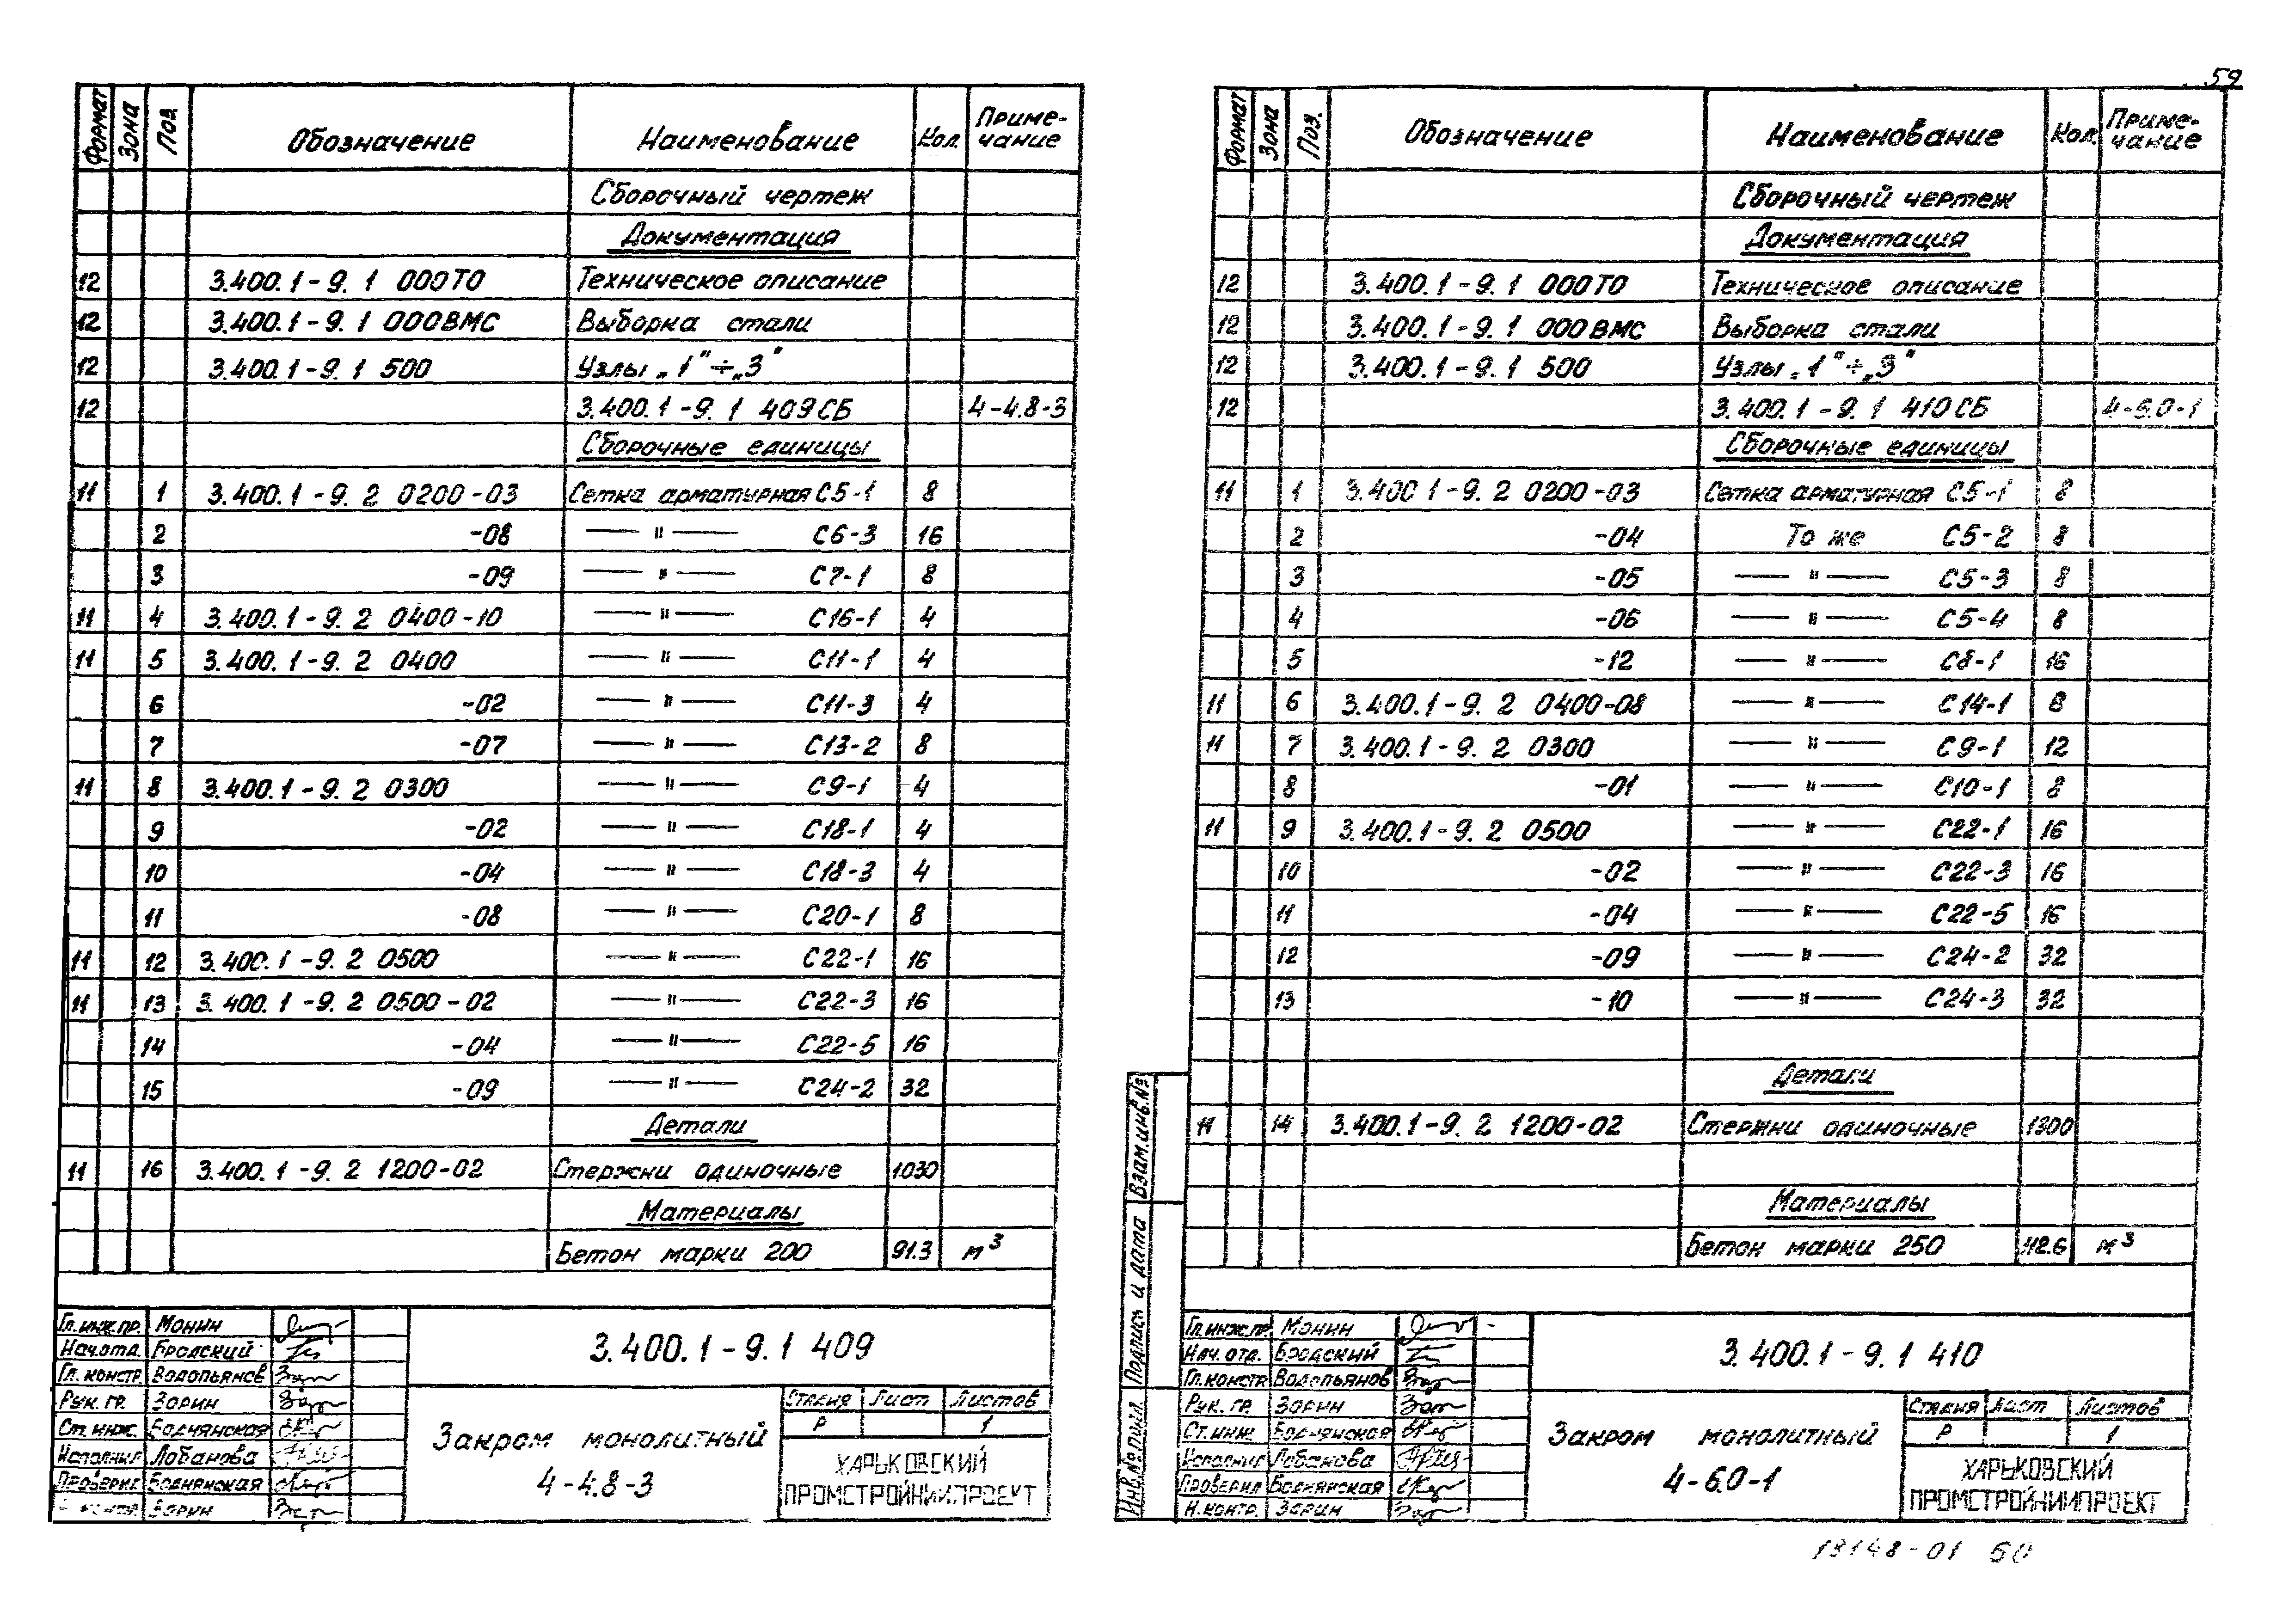 59
Формат Зона Поз. Обозначение Наименование Кол. Приме-
чание
Сборочный чертеж
Документация
12 3.400.1-9.1 000ТО Техническое описание
12 3.400.1-9.1 000ВМС Выборка стали
12 3.400.1-9.1 500 Узлы „1"÷„3"
12 3.400.1-9.1 409СБ 4-4.8-3
Сборочные единицы
11 1 3.400.1-9.2 0200-03 Сетка арматурная С5-1 8
2 -08 —"— С6-3 16
3 -09 —"— С7-1 8
11 4 3.400.1-9.2 0400-10 —"— С16-1 4
11 5 3.400.1-9.2 0400 —"— С11-1 4
6 -02 —"— С11-3 4
7 -07 —"— С13-2 8
11 8 3.400.1-9.2 0300 —"— С9-1 4
9 -02 —"— С18-1 4
10 -04 —"— С18-3 4
11 -08 —"— С20-1 8
11 12 3.400.1-9.2 0500 —"— С22-1 16
11 13 3.400.1-9.2 0500-02 —"— С22-3 16
14 -04 —"— С22-5 16
15 -09 —"— С24-2 32
Детали
11 16 3.400.1-9.2 1200-02 Стержни одиночные 1030
Материалы
Бетон марки 200 91.3 м3
Гл.инж.пр. Монин
Нач.отд. Бродский
Гл.констр. Водопьянов
Рук. гр. Зорин
Ст. инж. Боднянская
Исполнил Лобанова
Проверил Боднянская
Зорин
3.400.1-9.1 409
Закром монолитный
4-4.8-3
Стадия Лист Листов
Р 1
ХАРЬКОВСКИЙ
ПРОМСТРОЙНИИПРОЕКТ
Формат Зона Поз. Обозначение Наименование Кол. Приме-
чание
Сборочный чертеж
Документация
12 3.400.1-9.1 000ТО Техническое описание
12 3.400.1-9.1 000ВМС Выборка стали
12 3.400.1-9.1 500 Узлы „1"÷„3"
12 3.400.1-9.1 410СБ 4-6.0-1
Сборочные единицы
11 1 3.400 1-9.2 0200-03 Сетка арматурная С5-1 8
2 -04 То же С5-2 8
3 -05 —"— С5-3 8
4 -06 —"— С5-4 8
5 -12 —"— С8-1 16
11 6 3.400.1-9.2 0400-08 —"— С14-1 8
11 7 3.400.1-9.2 0300 —"— С9-1 12
8 -01 —"— С10-1 8
11 9 3.400.1-9.2 0500 —"— С22-1 16
10 -02 —"— С22-3 16
11 -04 —"— С22-5 16
12 -09 —"— С24-2 32
13 -10 —"— С24-3 32
Детали
11 14 3.400.1-9.2 1200-02 Стержни одиночные 1300
Материалы
Бетон марки 250 м3
Взам.инв.№
Подпись и дата
Инв.№ подл.
Гл.инж.пр. Монин
Нач. отд. Бродский
Гл.констр Водопьянов
Рук. гр. Зорин
Ст.инж. Боднянская
Исполнил Лобанова
Проверил Боднянская
Н.контр. Зорин
3.400.1-9.1 410
Закром монолитный
4-6.0-1
Стадия Лист Листов
Р 1
ХАРЬКОВСКИЙ
ПРОМСТРОЙНИИПРОЕКТ
13148-01 60